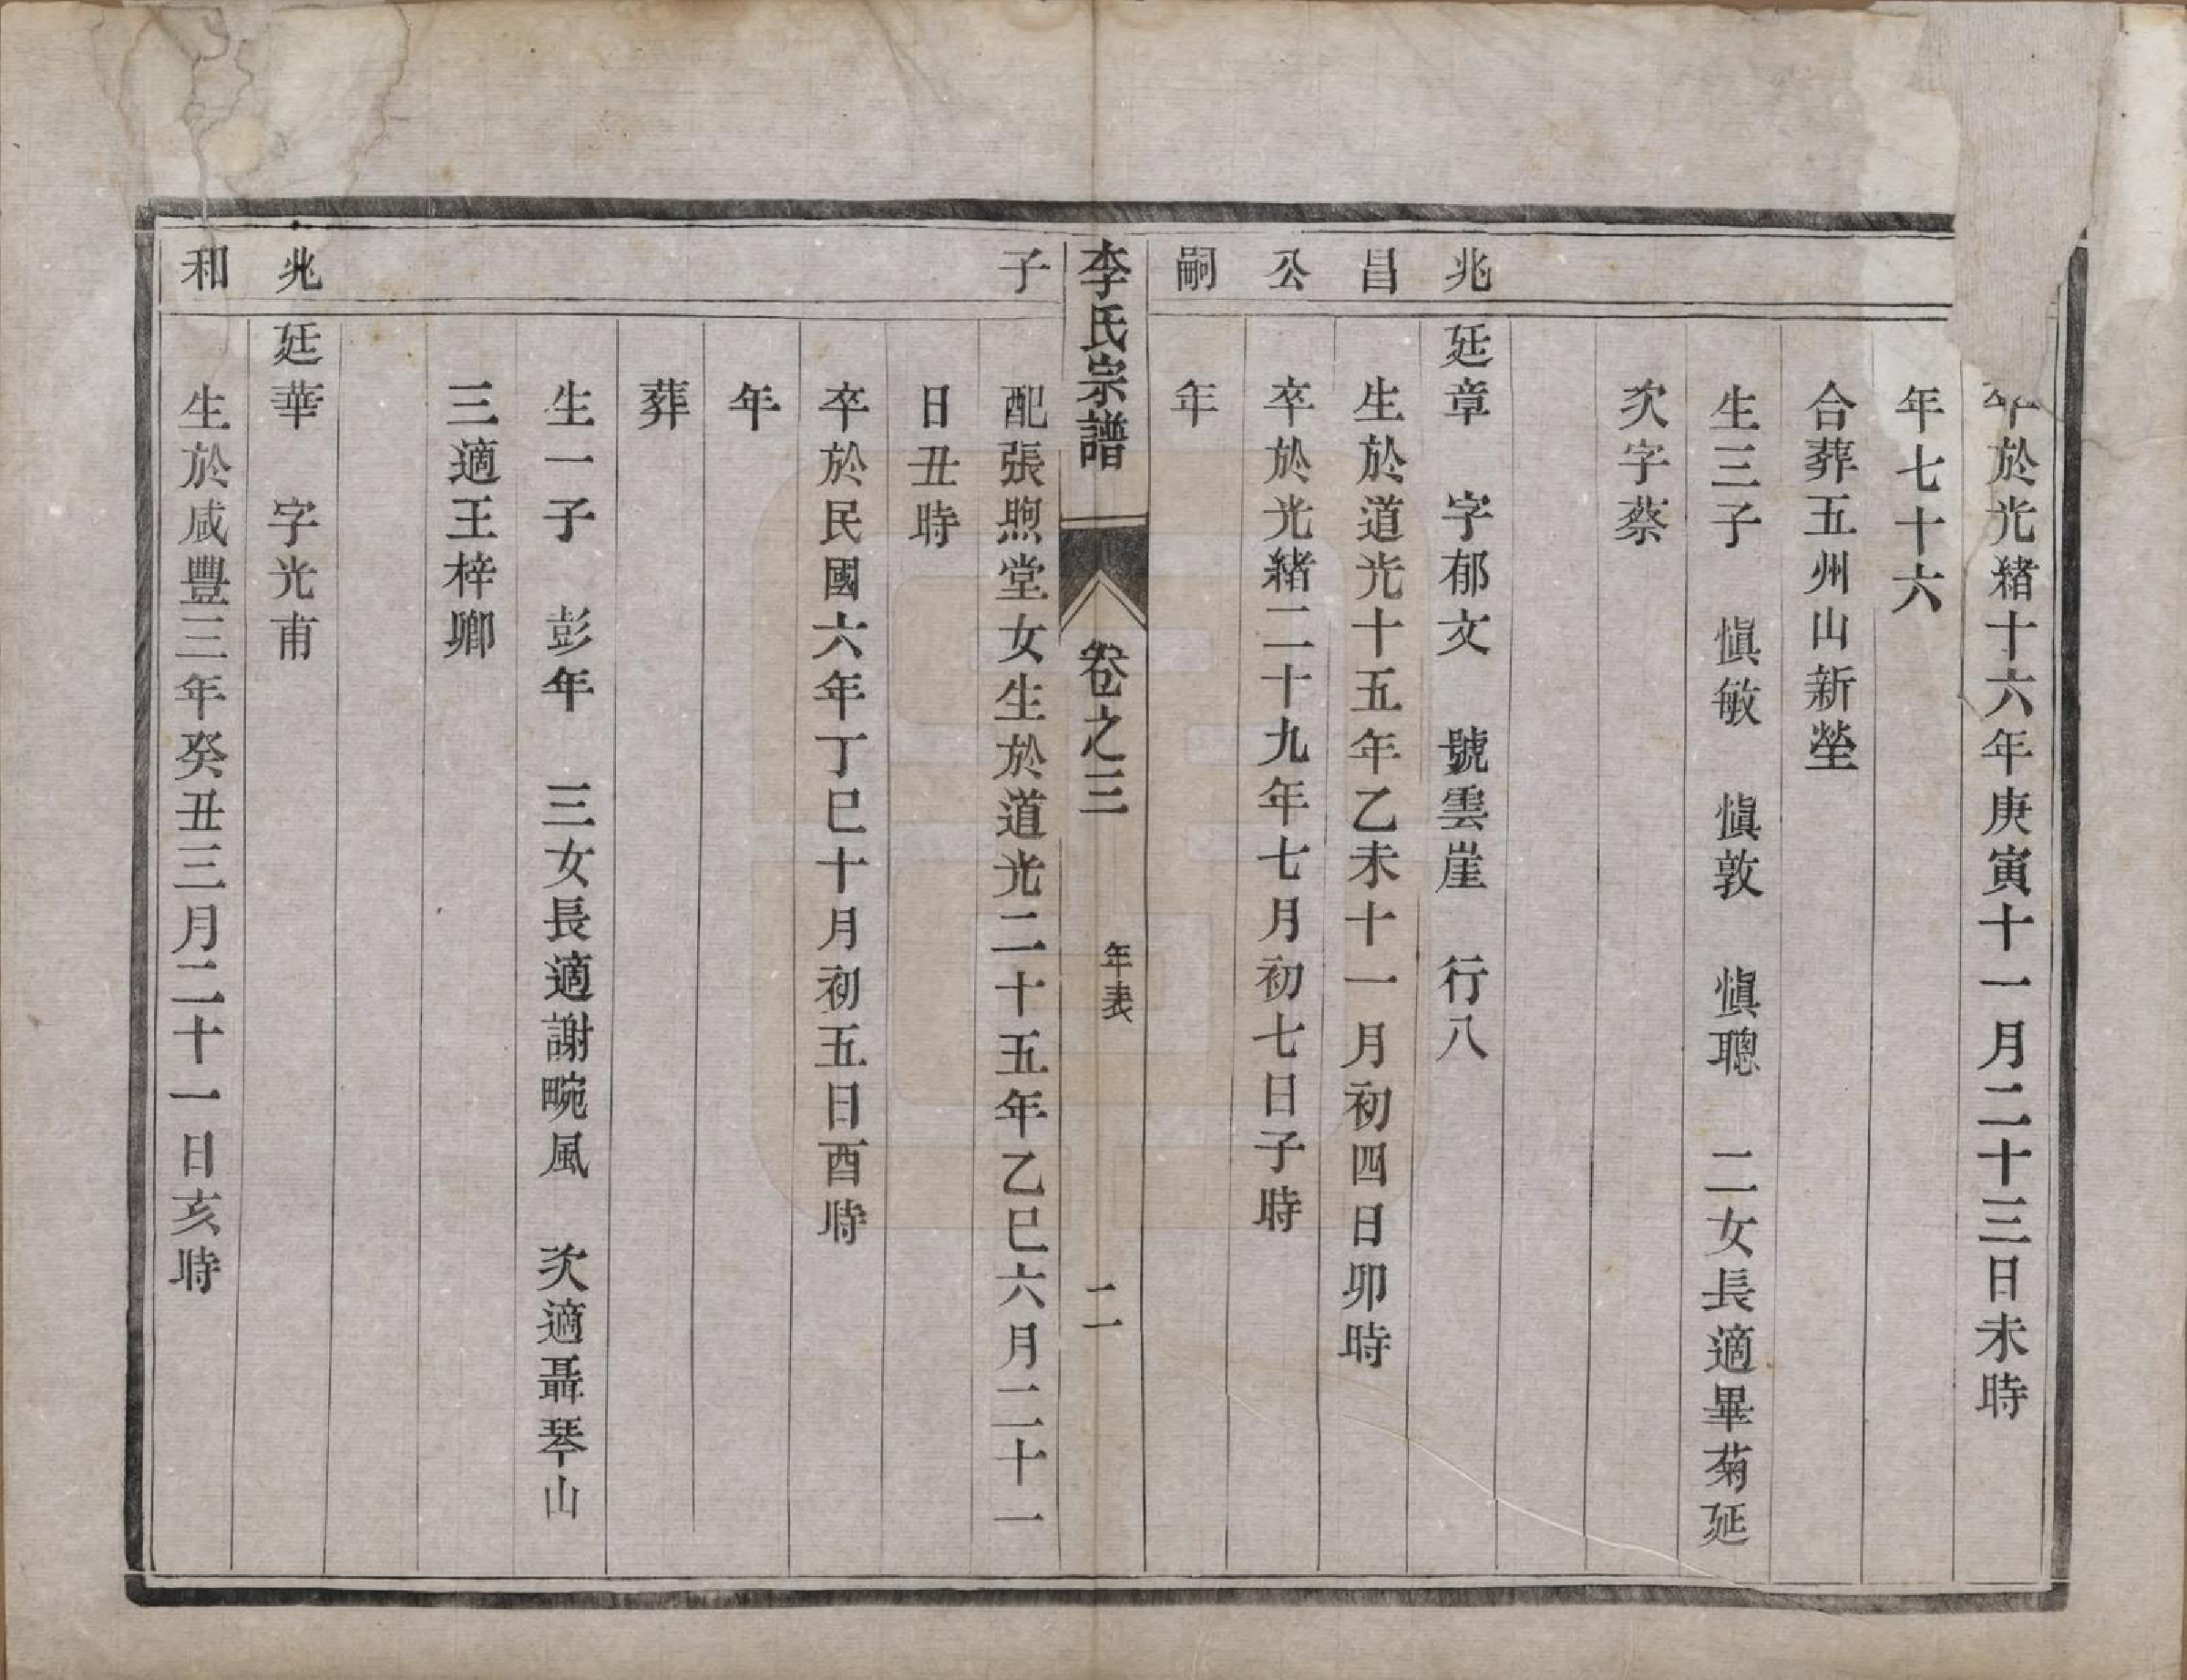 卒於光緒十六年庚寅十一月二十三日未時
年七十六
合葬五州山新塋
生三子　愼敏　愼敦　愼聰　二女長適畢菊延
次字蔡
兆　廷章　字郁文　號雲崖　行八
昌　生於道光十五年乙未十一月初四日卯時
公　卒於光緒二十九年七月初七日子時
嗣　年
李氏宗譜　卷之三　年表　二
子　配張煦堂女生於道光二十五年乙巳六月二十一
日丑時
卒於民國六年丁巳十月初五日酉時
年
葬
生一子　彭年　三女長適謝畹風　次適聶琴山
三適王梓鄉
兆　廷華　字光甫
和　生於咸豐三年癸丑三月二十一日亥時